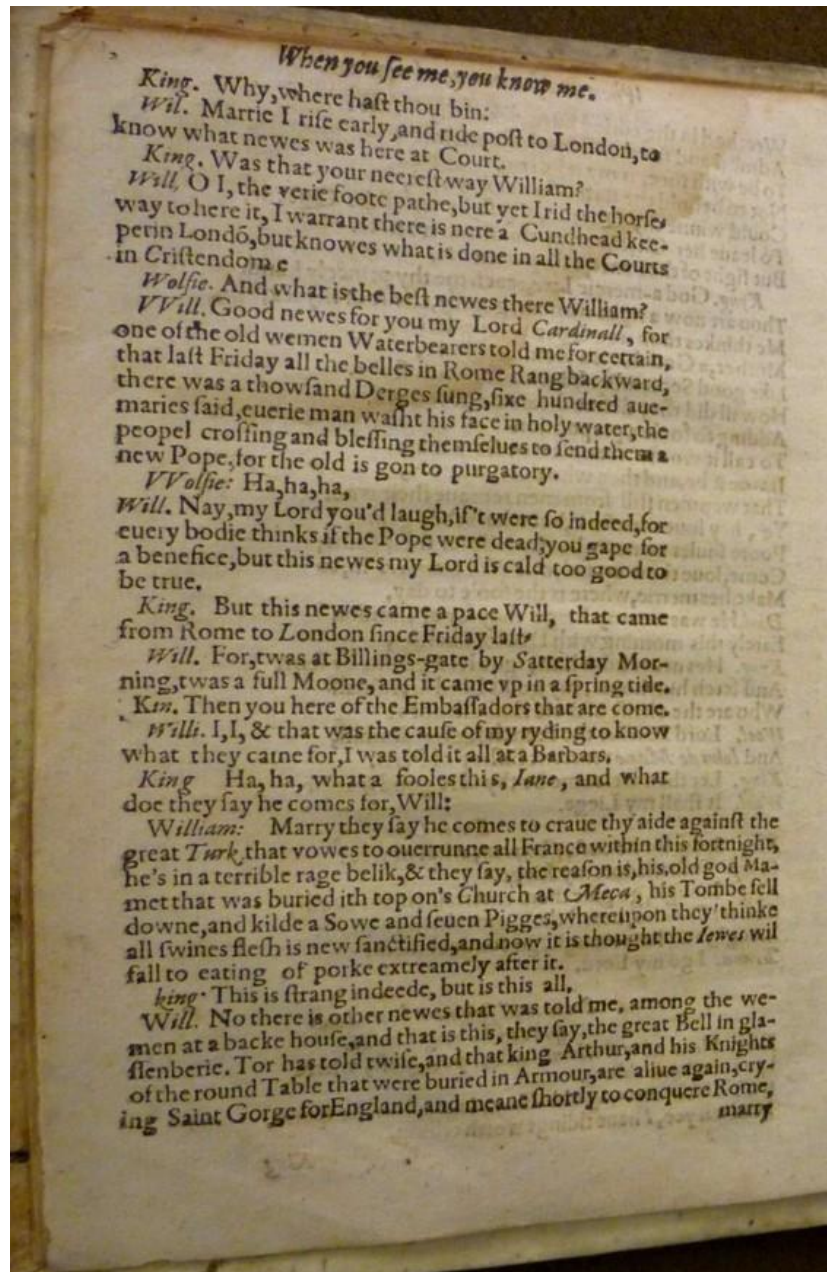 When you ſee me, you know me.
King. Why, where haſt thou bin:
Wil. Marrie I riſe early, and ride poſt to London, to
know what newes was here at Court.
King. Was that your neereſt way William?
Will. O I, the verie foote pathe, but yet I rid the horſe,
way to here it, I warrant there is nere a Cundhead kee-
per in Londõ, but knowes what is done in all the Courts
in Criſtendome
Wolſie. And what is the beſt newes there William?
VVill. Good newes for you my Lord Cardinall, for
one of the old wemen Waterbearers told me for certain,
that laſt Friday all the belles in Rome Rang backward,
there was a thowſand Derges ſung, ſixe hundred aue-
maries ſaid, euerie man waſht his face in holy water, the
peopel croſſing and bleſſing themſelues to ſend them a
new Pope, for the old is gon to purgatory.
VVolſie: Ha, ha, ha,
Will. Nay, my Lord you'd laugh, if't were ſo indeed, for
euery bodie thinks if the Pope were dead, you gape for
a benefice, but this newes my Lord is cald too good to
be true.
King. But this newes came a pace Will, that came
from Rome to London ſince Friday laſt,
Will. For, twas at Billings-gate by Satterday Mor-
ning, twas a full Moone, and it came vp in a ſpring tide.
Kin. Then you here of the Embaſſadors that are come.
Willi. I, I, & that was the cauſe of my ryding to know
what they came for, I was told it all at a Barbars.
King Ha, ha, what a fooles this, Iane, and what
doe they ſay he comes for, Will:
William: Marry they ſay he comes to craue thy aide againſt the
great Turk, that vowes to ouerrunne all France within this fortnight,
he's in a terrible rage belik, & they ſay, the reaſon is, his, old god Ma-
met that was buried ith top on's Church at Meca, his Tombe fell
downe, and kilde a Sowe and ſeuen Pigges, whereupon they thinke
all ſwines fleſh is new ſanctified, and now it is thought the Iewes wil
fall to eating of porke extreamely after it.
king. This is ſtrang indeede, but is this all,
Will. No there is other newes that was told me, among the we-
men at a backe houſe, and that is this, they ſay, the great Bell in gla-
ſſenberie. Tor has told twiſe, and that king Arthur, and his Knights
of the round Table that were buried in Armour, are aliue again, cry-
ing Saint Gorge for England, and meane ſhortly to conquere Rome,
marry